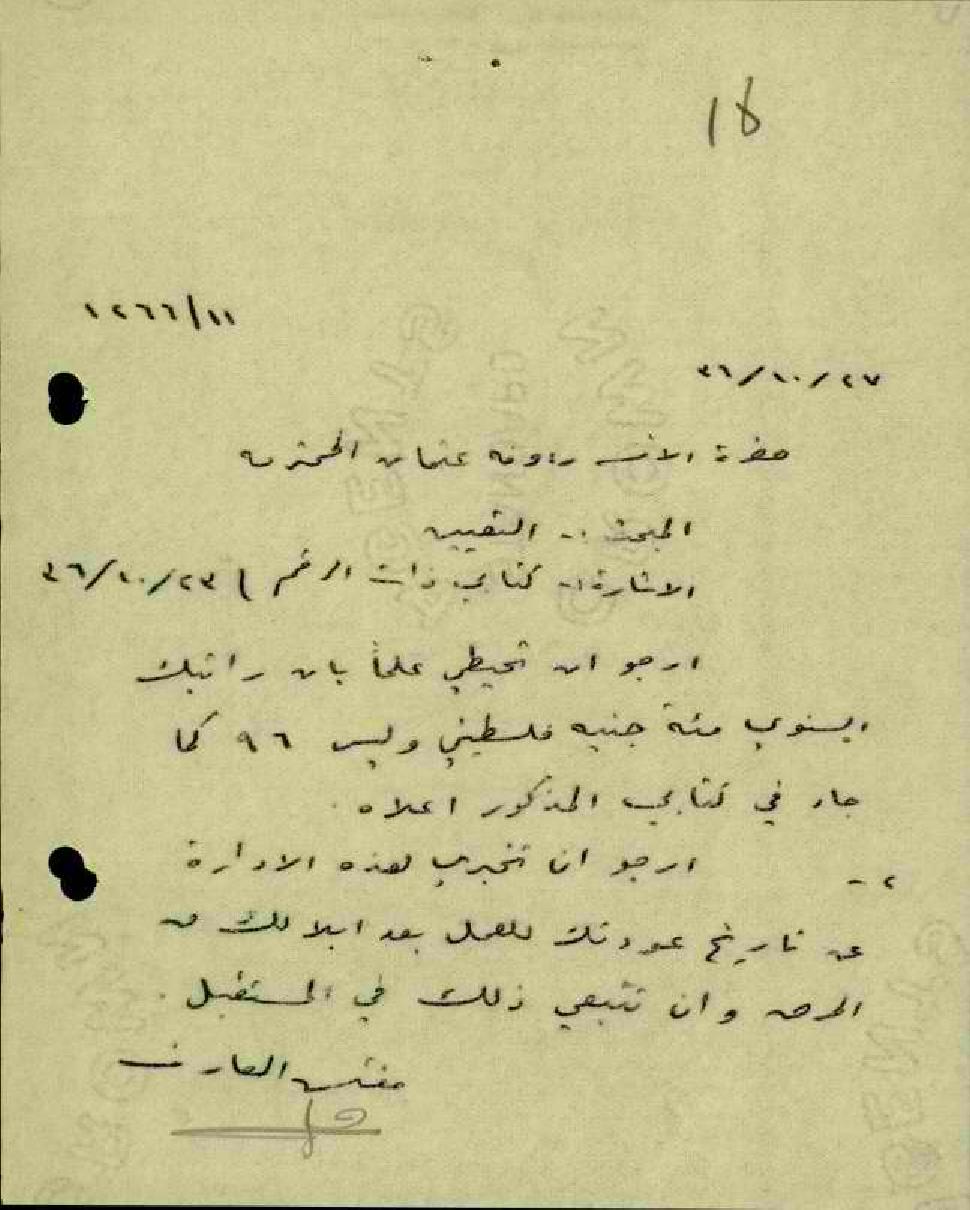 18
١٢٦٦/١١
٣٦/١٠/٢٧
حضرة الانسه عثمان المحترمه
المبحث :- التعيين
الاشارة :- كتابي ذات الرقم ) ٣٦/١٠/٢٣
ارجو ان تحيطي علماً بان راتبك
السنوي مئة جنيه فلسطيني وليس ٩٦ كما
جاء في كتابي المذكور اعلاه .
٢ - ارجو ان تخبري هذه الادارة
عن تاريخ عودتك للعمل بعد ابلالك من
المرض وان تتبعي ذلك في المستقبل .
مفتش المعارف